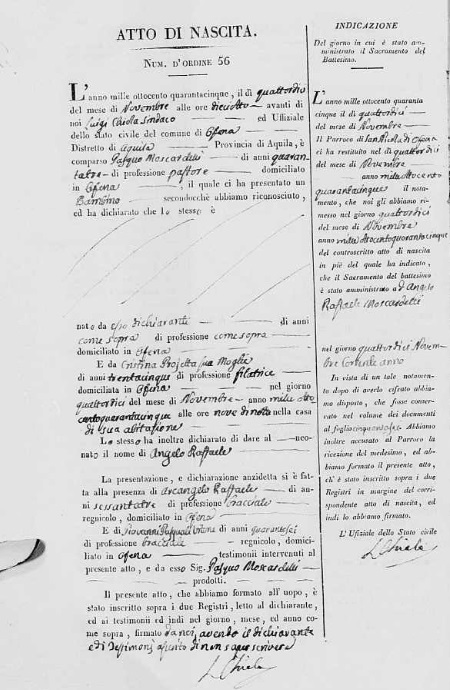 ATTO DI NASCITA.
NUM. D'ORDINE 56
L'anno mille ottocento quarantacinque, il dì quattordici
del mese di Novembre alle ore diciotto avanti di
noi Luigi Sindaco ed Uffiziale
dello stato civile del comune di Ofena
Distretto di Aquila Provincia di Aquila, è
comparso Pasquo Moscardelli di anni quaran
tatre di professione pastore domiciliato
in Ofena, il quale ci ha presentato un
Bambino secondochè abbiamo riconosciuto,
ed ha dichiarato che lo stesso è
nato da esso dichiarante di anni
come sopra di professione come sopra
domiciliato in Ofena
E da Cristina Projetta sua Moglie
di anni trentacinque di professione filatrice
domiciliata in Ofena nel giorno
quattordici del mese di Novembre anno mille otto
centoquarantacinque alle ore nove di notte nella casa
di sua abitazione
Lo stesso ha inoltre dichiarato di dare al neo-
nato il nome di Angelo Raffaele
La presentazione, e dichiarazione anzidetta si è fat-
ta alla presenza di Arcangelo Raffaele di an-
ni sessantatre di professione bracciale
regnicolo, domiciliato in Ofena
E di Giovanni Pasquale di anni quarantasei
di professione bracciale regnicolo, domici-
liato in Ofena testimonii intervenuti al
presente atto, e da esso Sig. Pasquo Moscardelli
prodotti.
Il presente atto, che abbiamo formato all'uopo, è
stato inscritto sopra i due Registri, letto al dichiarante,
ed ai testimonii ed indi nel giorno, mese, ed anno co-
me sopra, firmato da noi, avendo il dichiarante
e di Testimoni asserito di non saper scrivere
INDICAZIONE
Del giorno in cui è stato am-
ministrato il Sacramento del
Battesimo.
L'anno mille ottocento quaranta
cinque il dì quattordici
del mese di Novembre
Il Parroco di San Nicola di Ofena
ci ha restituito nel dì quattordici
del mese di Novembre
anno mille ottocento
quarantacinque il nota-
mento, che noi gli abbiamo ri-
messo nel giorno quattordici
del mese di Novembre
anno mille ottocentoquarantacinque
del controscritto atto di nascita
in piè del quale ha indicato,
che il Sacramento del battesimo
è stato amministrato a d'Angelo
Raffaele Moscardelli
nel giorno quattordici Novem
bre Corrente anno
In vista di un tale notamen-
to dopo di averlo cifrato abbia-
mo disposto, che fosse conser-
vato nel volume dei documenti
al foglio Abbiamo
inoltre accusato al Parroco la
ricezione del medesimo, ed ab-
biamo formato il presente atto,
ch'è stato inscritto sopra i due
Registri in margine del corri-
spondente atto di nascita, ed
indi lo abbiamo firmato.
L'Ufiziale dello Stato civile